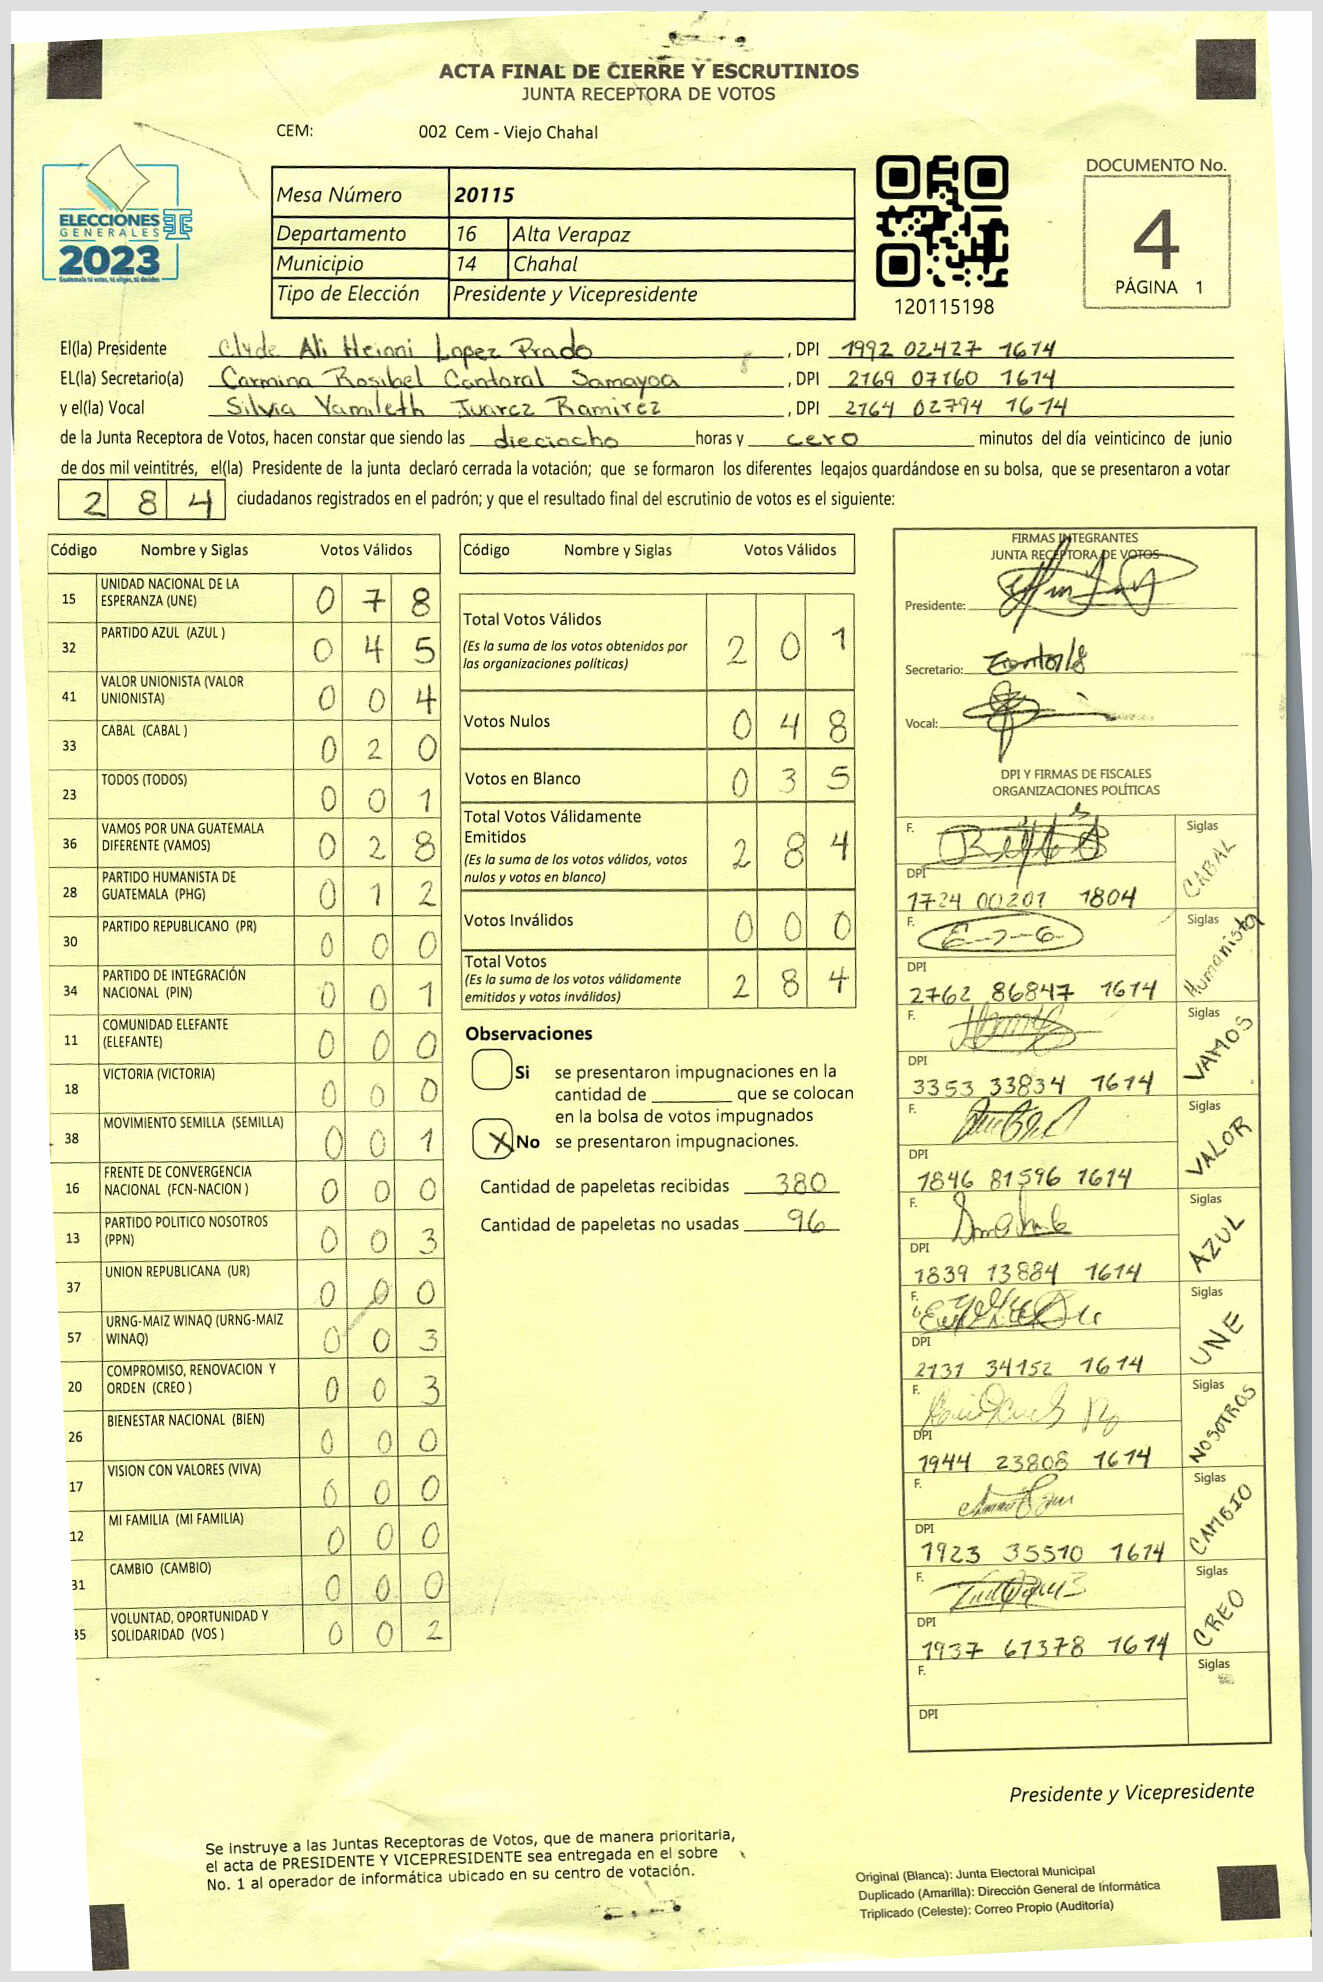 ACTA FINAL DE CIERRE Y ESCRUTINIOS
JUNTA RECEPTORA DE VOTOS
CEM: 002 Cem - Viejo Chahal
ELECCIONES
GENERALES
2023
Mesa Número 20115
Departamento 16 Alta Verapaz
Municipio 14 Chahal
Tipo de Elección Presidente y Vicepresidente
120115198
DOCUMENTO No.
4
PÁGINA 1
El(la) Presidente Clyde Ali Heinni Lopez Prado, DPI 1992 02427 1614
EL(la) Secretario(a) Carmina Rosibel Cantoral Samayoa, DPI 2169 07160 1614
y el(la) Vocal Silvia Yamileth Juarez Ramirez, DPI 2164 02794 1614
de la Junta Receptora de Votos, hacen constar que siendo las dieciocho horas y cero minutos del día veinticinco de junio
de dos mil veintitrés, el(la) Presidente de la junta declaró cerrada la votación; que se formaron los diferentes legajos guardándose en su bolsa, que se presentaron a votar
284 ciudadanos registrados en el padrón; y que el resultado final del escrutinio de votos es el siguiente:
Código Nombre y Siglas Votos Válidos
15 UNIDAD NACIONAL DE LA ESPERANZA (UNE) 0 7 8
32 PARTIDO AZUL (AZUL ) 0 4 5
41 VALOR UNIONISTA (VALOR UNIONISTA) 0 0 4
33 CABAL (CABAL ) 0 2 0
23 TODOS (TODOS) 0 0 1
36 VAMOS POR UNA GUATEMALA DIFERENTE (VAMOS) 0 2 8
28 PARTIDO HUMANISTA DE GUATEMALA (PHG) 0 1 2
30 PARTIDO REPUBLICANO (PR) 0 0 0
34 PARTIDO DE INTEGRACIÓN NACIONAL (PIN) 0 0 1
11 COMUNIDAD ELEFANTE (ELEFANTE) 0 0 0
18 VICTORIA (VICTORIA) 0 0 0
38 MOVIMIENTO SEMILLA (SEMILLA) 0 0 1
16 FRENTE DE CONVERGENCIA NACIONAL (FCN-NACION ) 0 0 0
13 PARTIDO POLITICO NOSOTROS (PPN) 0 0 3
37 UNION REPUBLICANA (UR) 0 0 0
57 URNG-MAIZ WINAQ (URNG-MAIZ WINAQ) 0 0 3
20 COMPROMISO, RENOVACION Y ORDEN (CREO ) 0 0 3
26 BIENESTAR NACIONAL (BIEN) 0 0 0
17 VISION CON VALORES (VIVA) 0 0 0
12 MI FAMILIA (MI FAMILIA) 0 0 0
31 CAMBIO (CAMBIO) 0 0 0
35 VOLUNTAD, OPORTUNIDAD Y SOLIDARIDAD (VOS ) 0 0 2
Código Nombre y Siglas Votos Válidos
Total Votos Válidos 2 0 1
(Es la suma de los votos obtenidos por
las organizaciones políticas)
Votos Nulos 0 4 8
Votos en Blanco 0 3 5
Total Votos Válidamente
Emitidos 2 8 4
(Es la suma de los votos válidos, votos
nulos y votos en blanco)
Votos Inválidos 0 0 0
Total Votos 2 8 4
(Es la suma de los votos válidamente
emitidos y votos inválidos)
Observaciones
Si se presentaron impugnaciones en la
cantidad de ________ que se colocan
en la bolsa de votos impugnados
X No se presentaron impugnaciones.
Cantidad de papeletas recibidas 380
Cantidad de papeletas no usadas 96
FIRMAS INTEGRANTES
JUNTA RECEPTORA DE VOTOS
Presidente:
Secretario:
Vocal:
DPI Y FIRMAS DE FISCALES
ORGANIZACIONES POLÍTICAS
F. Siglas CABAL
DPI 1724 00201 1804
F. Siglas Humanista
DPI 2762 86847 1614
F. Siglas VAMOS
DPI 3353 33834 1614
F. Siglas VALOR
DPI 1846 81596 1614
F. Siglas AZUL
DPI 1839 13884 1614
F. Siglas UNE
DPI 2131 34152 1614
F. Siglas NOSOTROS
DPI 1944 23808 1614
F. Siglas CAMBIO
DPI 1923 35510 1614
F. Siglas CREO
DPI 1937 61378 1614
F. Siglas
DPI
Presidente y Vicepresidente
Se instruye a las Juntas Receptoras de Votos, que de manera prioritaria,
el acta de PRESIDENTE Y VICEPRESIDENTE sea entregada en el sobre
No. 1 al operador de informática ubicado en su centro de votación.
Original (Blanca): Junta Electoral Municipal
Duplicado (Amarilla): Dirección General de Informática
Triplicado (Celeste): Correo Propio (Auditoría)